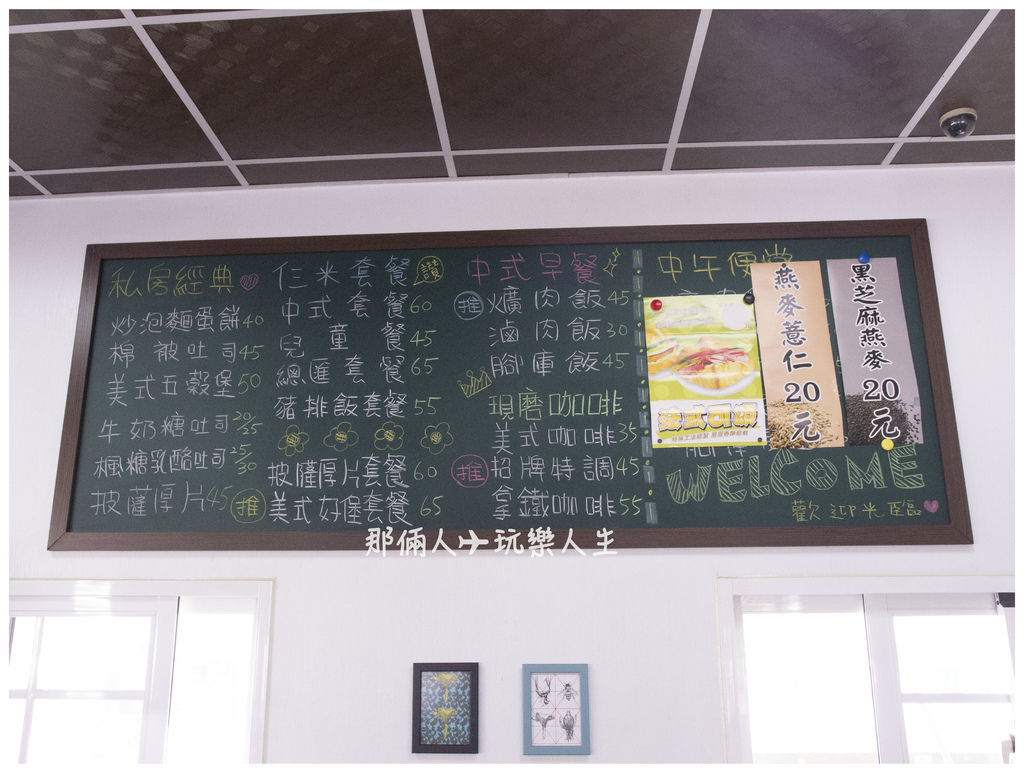 私房經典
炒泡麵蛋餅40
棉被吐司45
美式五穀堡50
牛奶糖吐司20/25
楓糖乳酪吐司25/30
披薩厚片45 推
仁米套餐 讚
中式套餐60
兒童餐45
總匯套餐65
豬排飯套餐55
披薩厚片套餐60
美式好堡套餐65
中式早餐
推 爌肉飯45
滷肉飯30
腳庫飯45
現磨咖啡
美式咖啡35
推 招牌特調45
拿鐵咖啡55
中午便當
燕麥薏仁20元
黑芝麻燕麥20元
WELCOME
歡迎光臨
那倆人✈玩樂人生